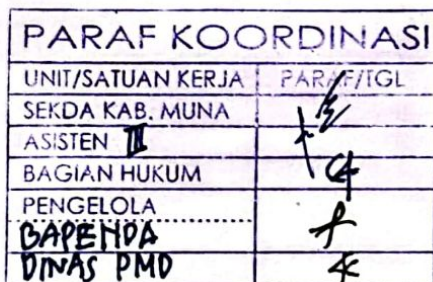 PARAF KOORDINASI
UNIT/SATUAN KERJA PARAF/TGL
SEKDA KAB. MUNA
ASISTEN III
BAGIAN HUKUM
PENGELOLA
BAPENDA
DINAS PMD